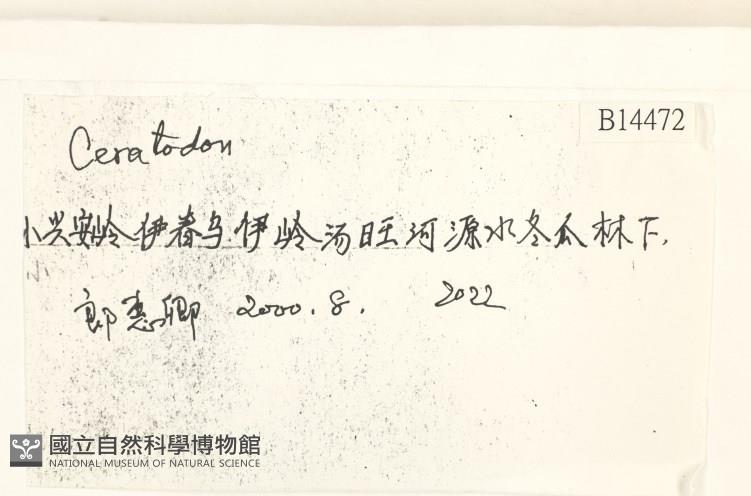 B14472
Ceratodon
小兴安岭伊春乌伊岭汤旺河源水冬瓜林下.
郎惠卿 2000.8. 2022
國立自然科學博物館
NATIONAL MUSEUM OF NATURAL SCIENCE